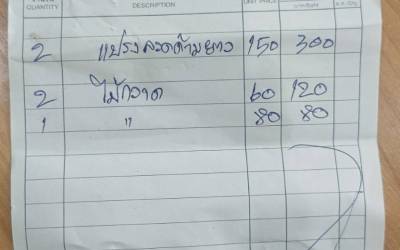 QUANTITY DESCRIPTION UNIT PRICE
2 แปรงลวดด้ามยาว 150 300
2 ไม้กวาด 60 120
1 " 80 80